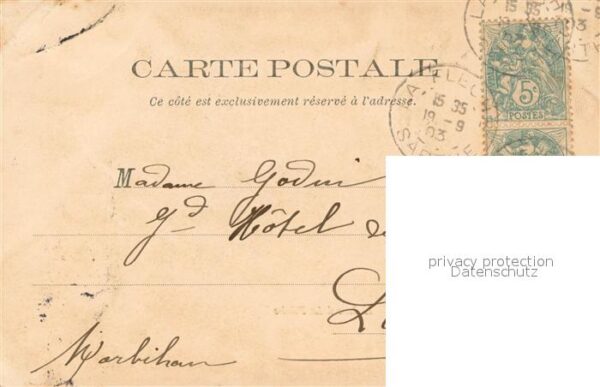 CARTE POSTALE
Ce côté est exclusivement réservé à l'adresse.
5c
POSTES
15 35
19 - 9
03
Madame Godin
Gd Hôtel de
Morbihan
privacy protection
Datenschutz